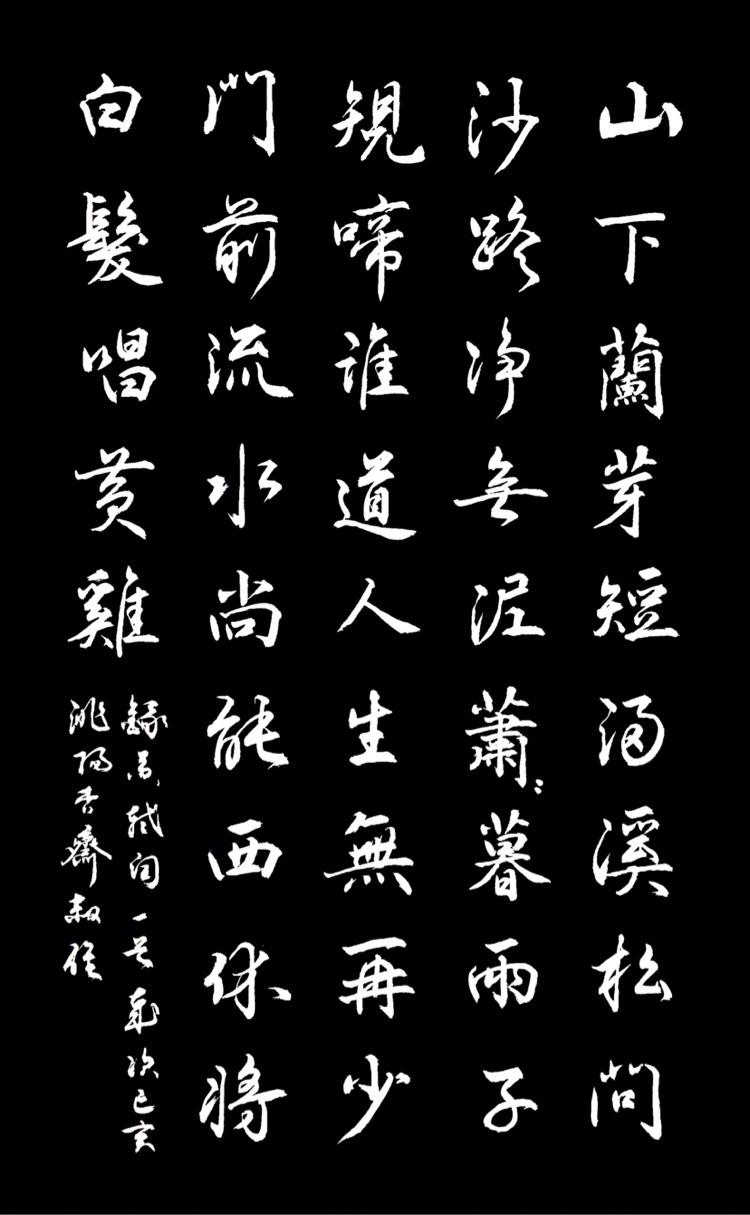 山下蘭芽短浸溪松間
沙路净無泥蕭〻暮雨子
規啼誰道人生無再少
門前流水尚能西休將
白髮唱黄雞
錄蘇軾詞一首歲次己亥
齋